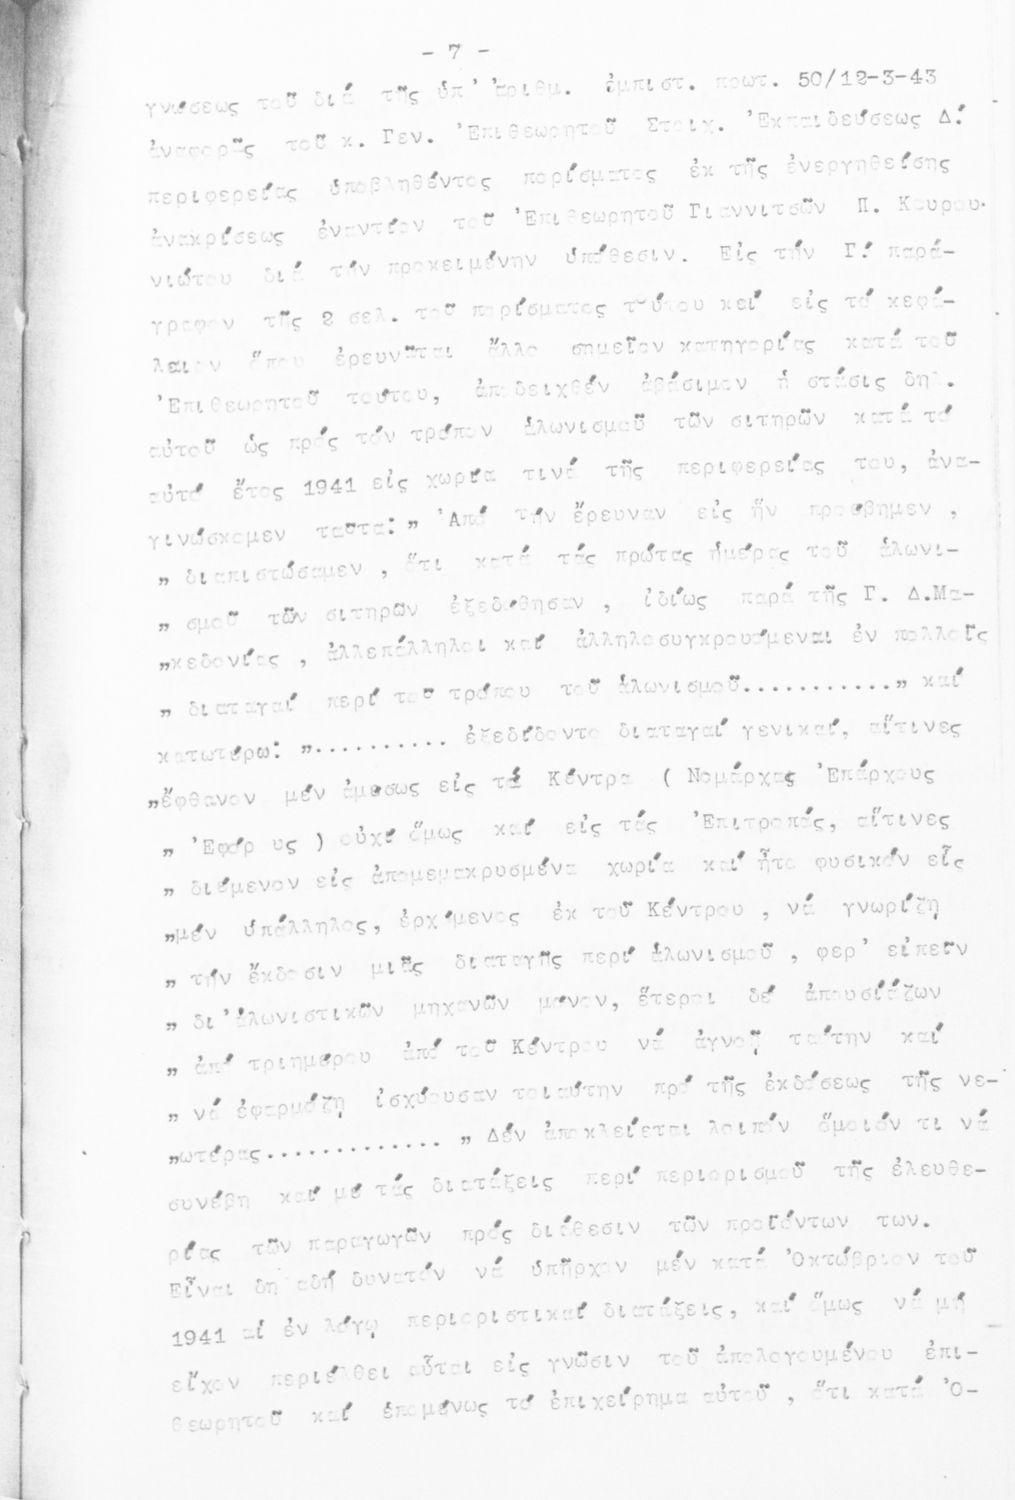 - 7 -
γνώσεως τοῦ διά τῆς ὑπ' ἀριθμ. ἐμπιστ. πρωτ. 50/12-3-43
ἀναφορᾶς τοῦ κ. Γεν. Ἐπιθεωρητοῦ Στοιχ. Ἐκπαιδεύσεως Δ΄.
περιφερείας ὑποβληθέντος πορίσματος ἐκ τῆς ἐνεργηθείσης
ἀνακρίσεως ἐναντίον τοῦ Ἐπιθεωρητοῦ Γιαννιτσῶν Π. Κουρου-
νιώτου διά τήν προκειμένην ὑπόθεσιν. Εἰς τήν Γ΄. παρά-
γραφον τῆς 2 σελ. τοῦ πορίσματος τούτου καί εἰς τό κεφά-
λαιον ὅπου ἐρευνᾶται ἄλλο σημεῖον κατηγορίας κατά τοῦ
Ἐπιθεωρητοῦ τούτου, ἀποδειχθέν ἀβάσιμον ἡ στάσις δηλ.
αὐτοῦ ὡς πρός τόν τρόπον ἁλωνισμοῦ τῶν σιτηρῶν κατά τό
αὐτό ἔτος 1941 εἰς χωρία τινά τῆς περιφερείας του, ἀνα-
γινώσκομεν ταῦτα: „ Ἀπό τήν ἔρευναν εἰς ἥν προέβημεν ,
„ διαπιστώσαμεν , ὅτι κατά τάς πρώτας ἡμέρας τοῦ ἁλωνι-
„ σμοῦ τῶν σιτηρῶν ἐξεδόθησαν , ἰδίως παρά τῆς Γ. Δ.Μα-
„κεδονίας , ἀλλεπάλληλοι καί ἀλληλοσυγκρουόμεναι ἐν πολλοῖς
„ διαταγαί περί τοῦ τρόπου τοῦ ἁλωνισμοῦ............„ καί
κατωτέρω: „.......... ἐξεδίδοντο διαταγαί γενικαί, αἵτινες
„ἔφθανον μέν ἀμέσως εἰς τά Κέντρα ( Νομάρχας Ἐπάρχους
„ Ἐφόρ υς ) οὐχί ὅμως καί εἰς τάς Ἐπιτροπάς, αἵτινες
„ διέμενον εἰς ἀπομεμακρυσμένα χωρία καί ἦτο φυσικόν εἷς
„μέν ὑπάλληλος, ἐρχόμενος ἐκ τοῦ Κέντρου , νά γνωρίζῃ
„ τήν ἔκδοσιν μιᾶς διαταγῆς περί ἁλωνισμοῦ , φερ' εἰπεῖν
„ δι'ἁλωνιστικῶν μηχανῶν μόνον, ἕτεροι δέ ἀπουσιάζων
„ ἀπό τριημέρου ἀπό τοῦ Κέντρου νά ἀγνοῇ ταύτην καί
„ νά ἐφαρμόζῃ ἰσχύουσαν τοιαύτην πρό τῆς ἐκδόσεως τῆς νε-
„ωτέρας............. „ Δέν ἀποκλείεται λοιπόν ὅμοιόν τι νά
συνέβη καί μέ τάς διατάξεις περί περιορισμοῦ τῆς ἐλευθε-
ρίας τῶν παραγωγῶν πρός διάθεσιν τῶν προϊόντων των.
Εἶναι δηλαδή δυνατόν νά ὑπῆρχον μέν κατά Ὀκτώβριον τοῦ
1941 αἱ ἐν λόγῳ περιοριστικαί διατάξεις, καί ὅμως νά μή
εἶχον περιέλθει αὗται εἰς γνῶσιν τοῦ ἀπολογουμένου ἐπι-
θεωρητοῦ καί ἑπομένως τό ἐπιχείρημα αὐτοῦ , ὅτι κατά Ὀ-